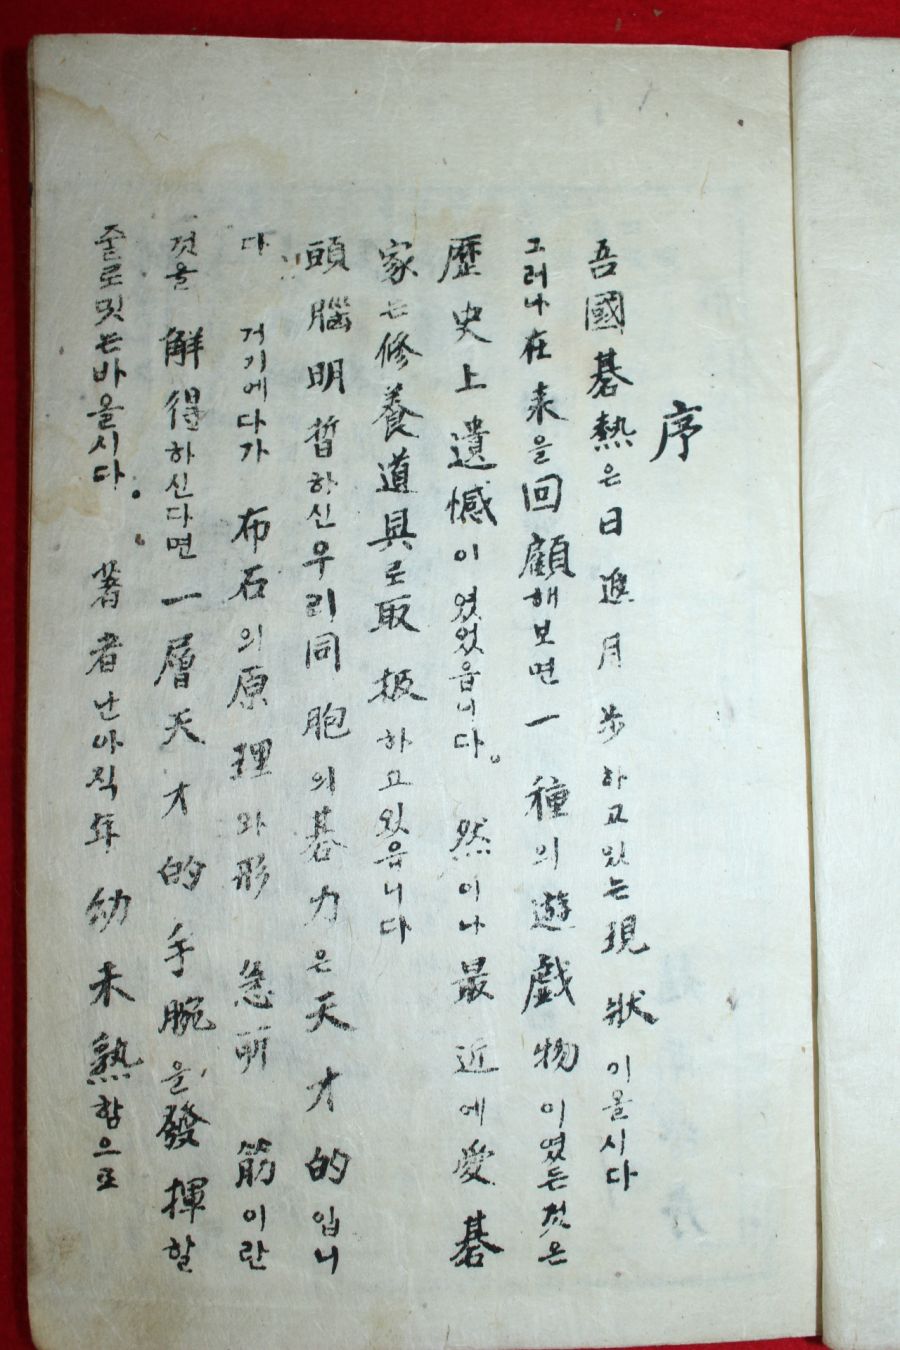 序
吾國碁熱은日進月步하고있는現狀이올시다
그러나在來을回顧해보면一種의遊戱物이였든것은
歷史上遺憾이였었읍니다。然이나最近에愛碁
家는修養道具로取扱하고있읍니다
頭腦明晳하신우리同胞의碁力은天才的입니
다 거기에다가布石의原理와形 急所 筋이란
것을解得하신다면一層天才的手腕을發揮할
줄로밋는바올시다。著者난아직年幼未熟함으로